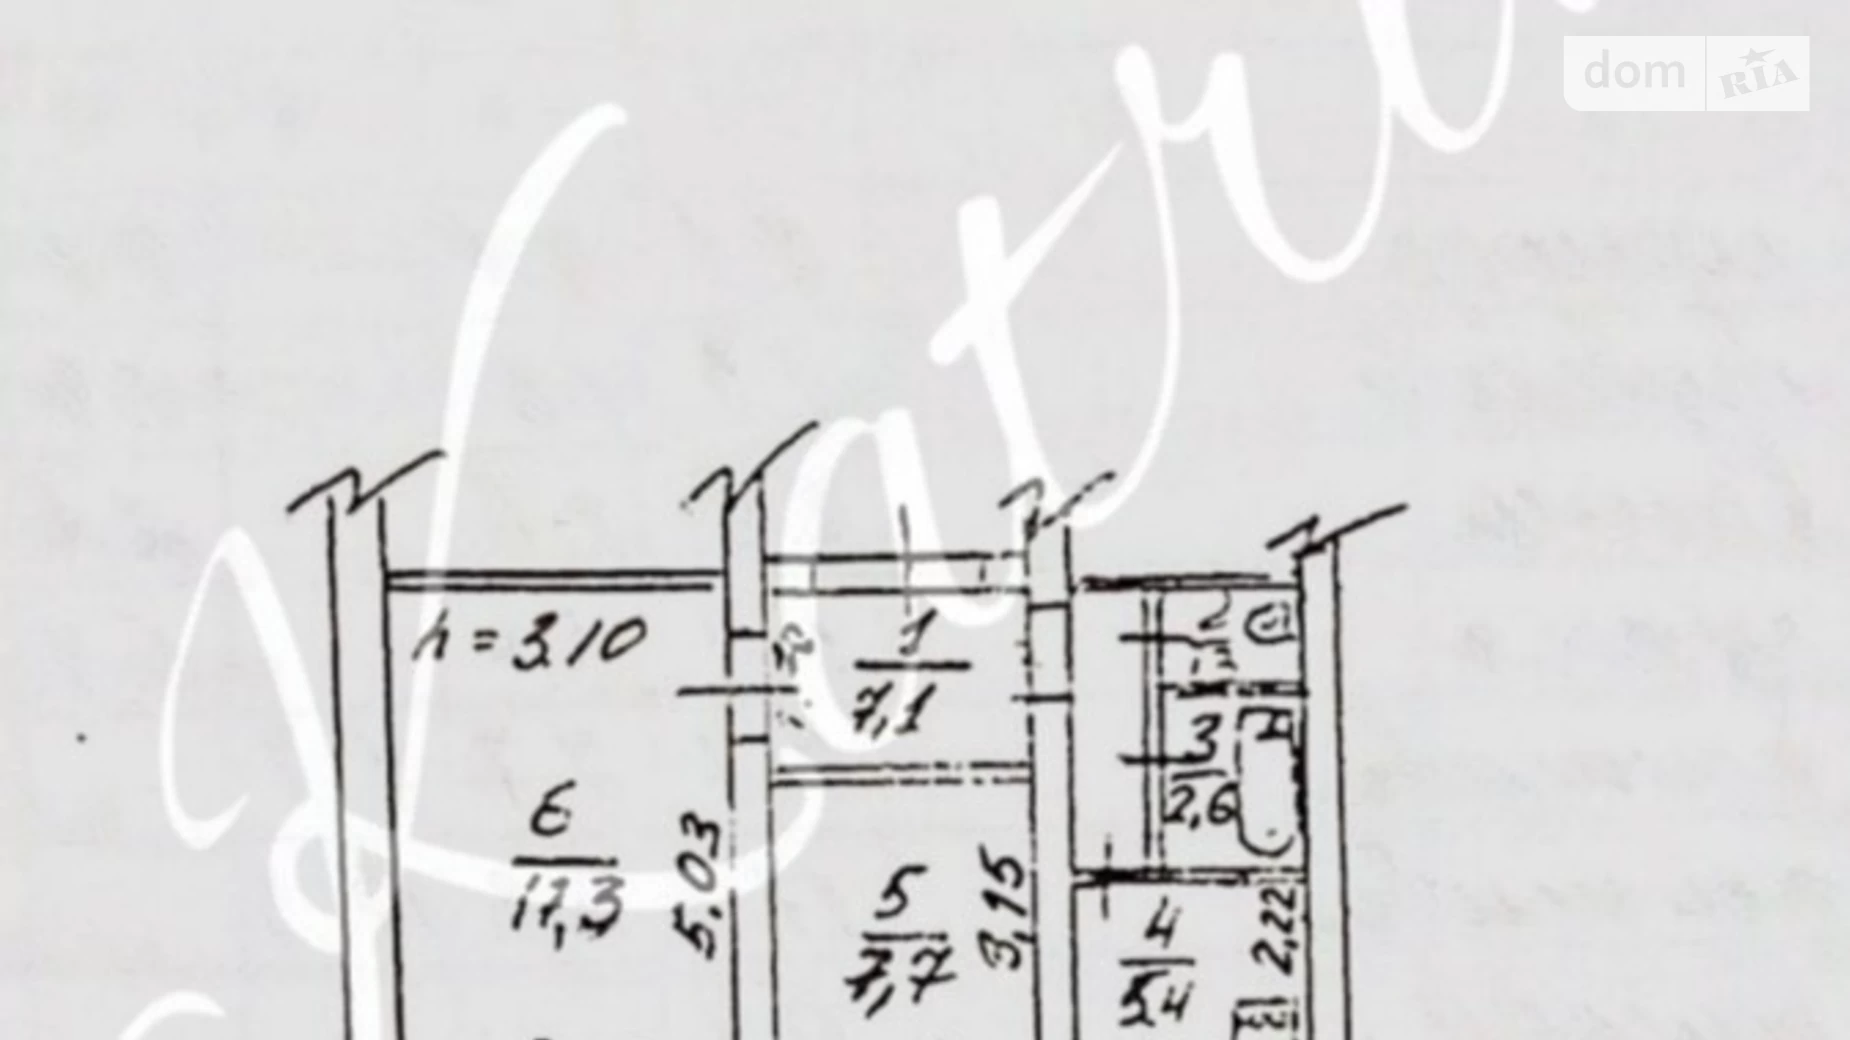 dom RIA
Katru
h = 3.10
1
7,1
2
3
2,6
6
17,3
5,03
5
7,7
3,15
4
5,4
2,22